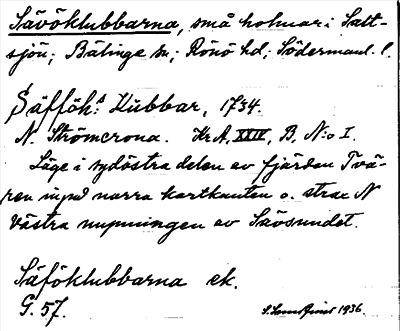 Sävöklubbarna, små holmar i Salt-
sjön; Bälinge sn; Rönö hd; Södermanl. l.
Säfföh:s Kubbar, 1734.
N. Strömcrona. Kr.A, XXIV, B, N:o I.
Läge i sydöstra delen av fjärden Tvä-
ren invid norra kartkanten o. strax N
Västra mynningen av Sävsundet.
Säföklubbarna ek.
G. 57.
1936.